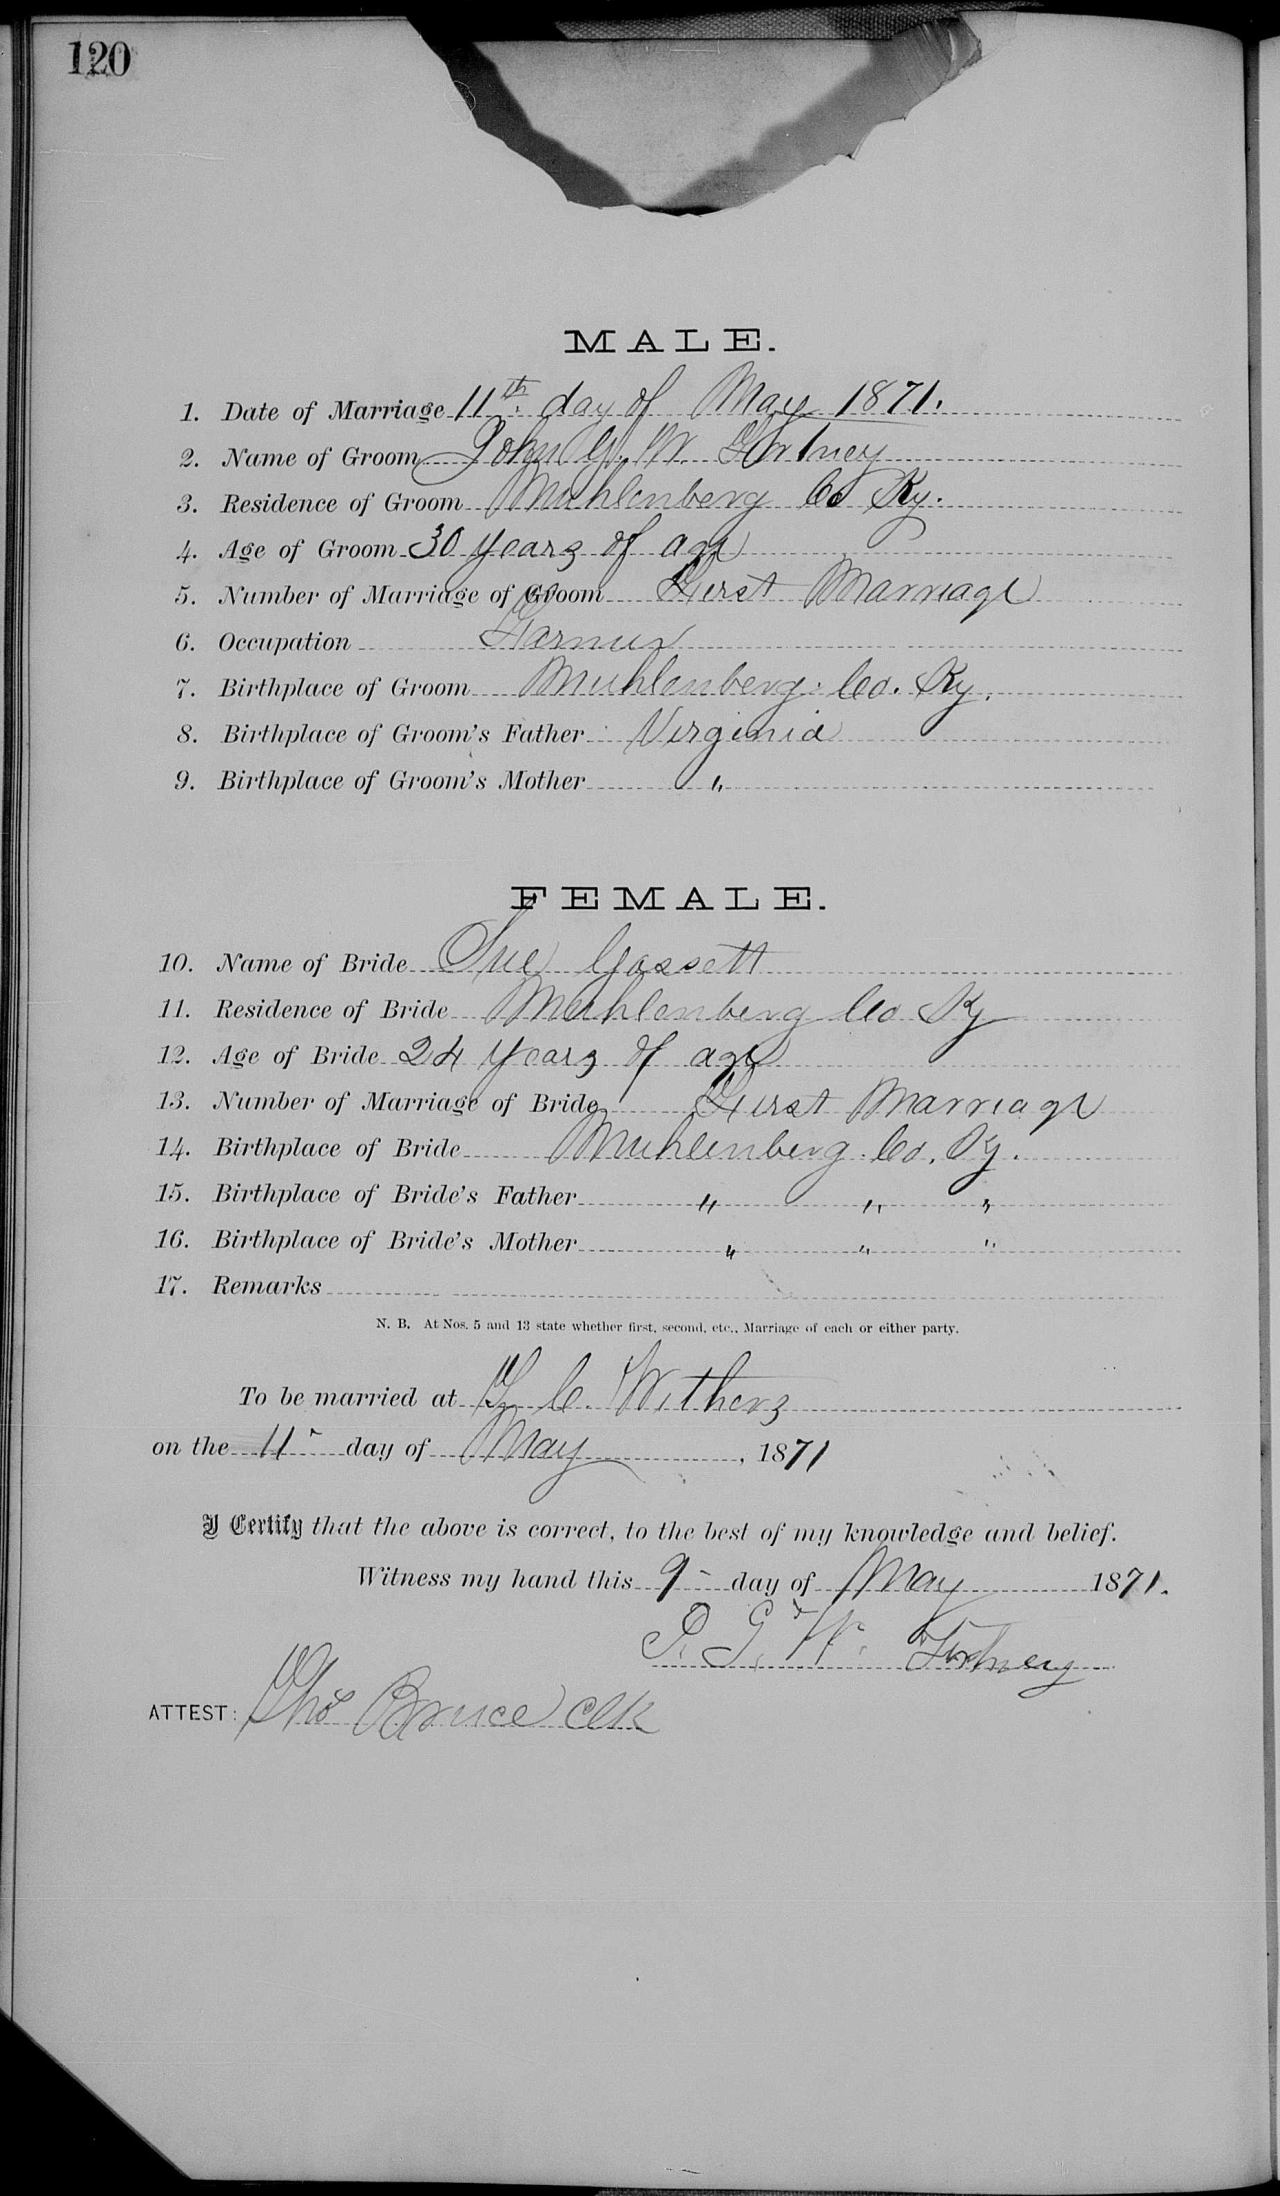 120
MALE.
1. Date of Marriage 11th day of May 1871.
2. Name of Groom John G. W. Fortney
3. Residence of Groom Muhlenberg Co Ky.
4. Age of Groom 30 years of age
5. Number of Marriage of Groom First Marriage
6. Occupation Farmer
7. Birthplace of Groom Muhlenberg Co. Ky.
8. Birthplace of Groom's Father Virginia
9. Birthplace of Groom's Mother "
FEMALE.
10. Name of Bride Sue Gossett
11. Residence of Bride Muhlenberg Co Ky
12. Age of Bride 24 years of age
13. Number of Marriage of Bride First Marriage
14. Birthplace of Bride Muhlenberg Co. Ky.
15. Birthplace of Bride's Father " " "
16. Birthplace of Bride's Mother " " "
17. Remarks
N. B. At Nos. 5 and 13 state whether first, second, etc., Marriage of each or either party.
To be married at C. Withers
on the 11 day of May, 1871
I Certify that the above is correct, to the best of my knowledge and belief.
Witness my hand this 9 day of May 1871.
J. G. W. Fortney
ATTEST: Tho Bruce Clk